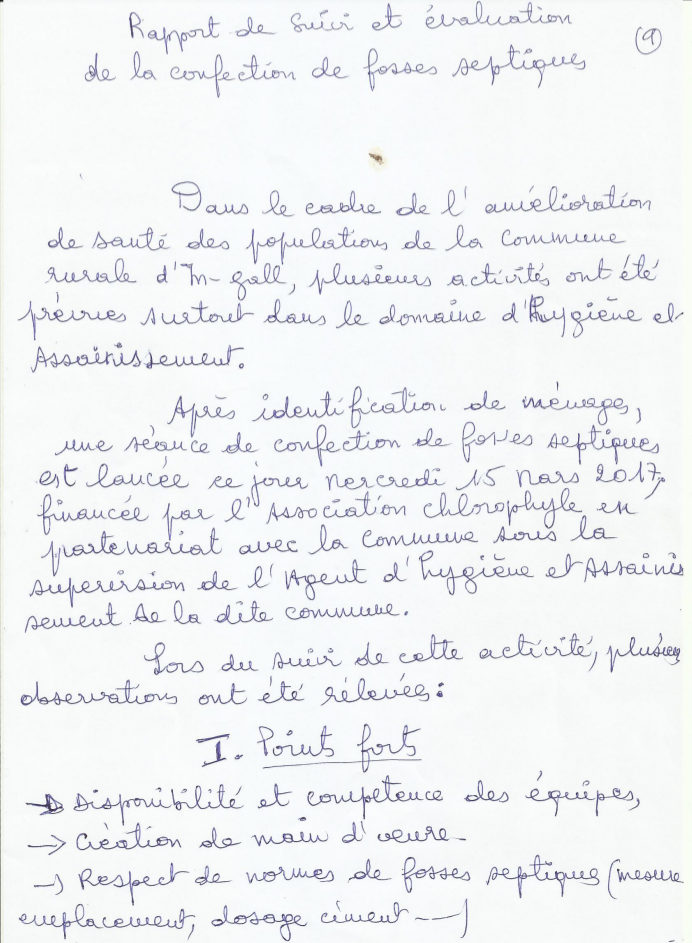 Rapport de Suivi et évaluation
(1)
de la confection de fosses septiques
Dans le cadre de l'amélioration
de santé des populations de la commune
rurale d'In-gall, plusieurs activités ont été
prévues surtout dans le domaine d'hygiène et
Assainissement.
Après identification de ménages,
une séance de confection de fosses septiques
est lancée ce jour mercredi 15 Mars 2017,
financée par l'Association chlorophyle en
partenariat avec la commune sous la
supervision de l'Agent d'hygiène et Assainis
sement de la dite commune.
Lors du suivi de cette activité, plusieurs
observations ont été rélevées:
I. Points forts
→ Disponibilité et compétence des équipes,
→ Création de main d'veure-
→ Respect de normes de fosses septiques (mesure
emplacement, dosage ciment ---)